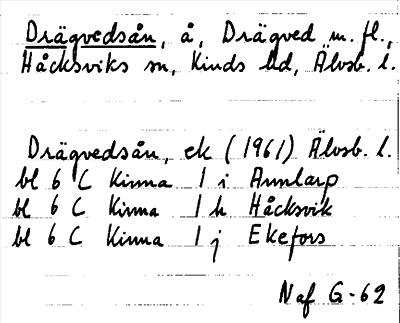 Drägvedsån, å, Drägved m. fl.,
Håcksviks sn, Kinds hd, Älvsb. l.
Drägvedsån, ek (1961) Älvsb. l.
bl 6 C Kinna 1 i Annlarp
bl 6 C Kinna 1 h Håcksvik
bl 6 C Kinna 1 j Ekefors
Naf G-62